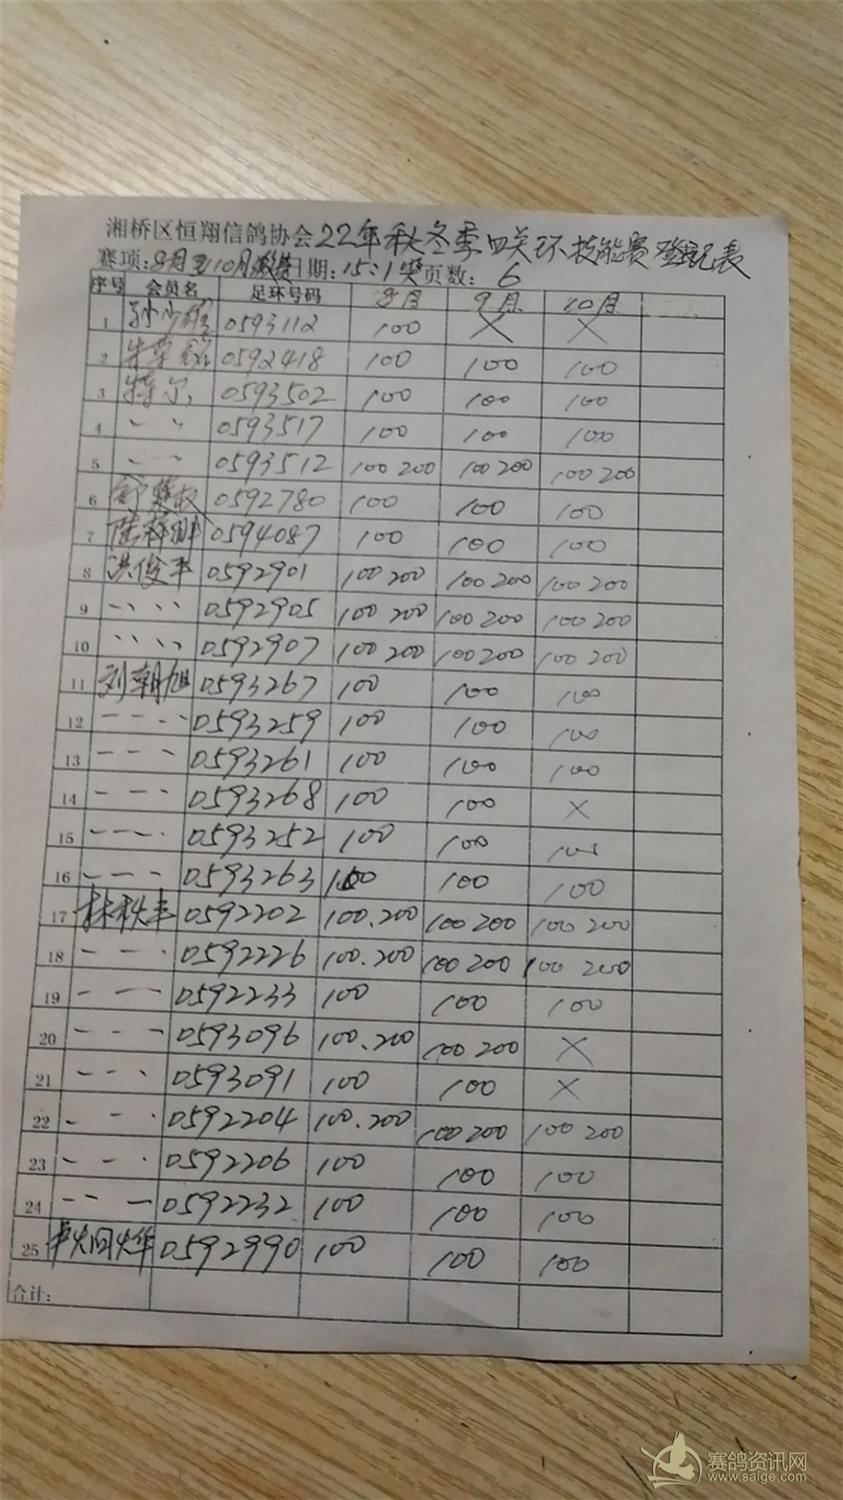 湘桥区恒翔信鸽协会22年秋冬季四关环技能赛登记表
赛项:8月至10月 日期:15:1奖页数:6
序号 会员名 足环号码 8月 9月 10月
1 孙少雄 0593112 100 × ×
2 朱荣铭 0592418 100 100 100
3 特尔 0593502 100 100 100
4 、、 0593517 100 100 100
5 、、 0593512 100 200 100 200 100 200
6 0592780 100 100 100
7 陈 0594087 100 100 100
8 洪俊丰 0592901 100 200 100 200 100 200
9 、、、、 0592905 100 200 100 200 100 200
10 、、、、 0592907 100 200 100 200 100 200
11 刘朝旭 0593267 100 100 100
12 — — 、、 0593259 100 100 100
13 — — 、 0593261 100 100 100
14 — — 、 0593268 100 100 ×
15 — — — 、 0593252 100 100 100
16 — — — 0593263 100 100 100
17 林秋丰 0592202 100.200 100 200 100 200
18 — — 、 0592226 100.200 100 200 100 200
19 — — — 0592233 100 100 100
20 — — — 0593096 100.200 100 200 ×
21 — — 、 0593091 100 100 ×
22 — — 、 0592204 100.200 100 200 100 200
23 — — 、 0592206 100 100 100
24 — — — 0592232 100 100 100
25 0592990 100 100 100
合计:
赛鸽资讯网
www.saige.com